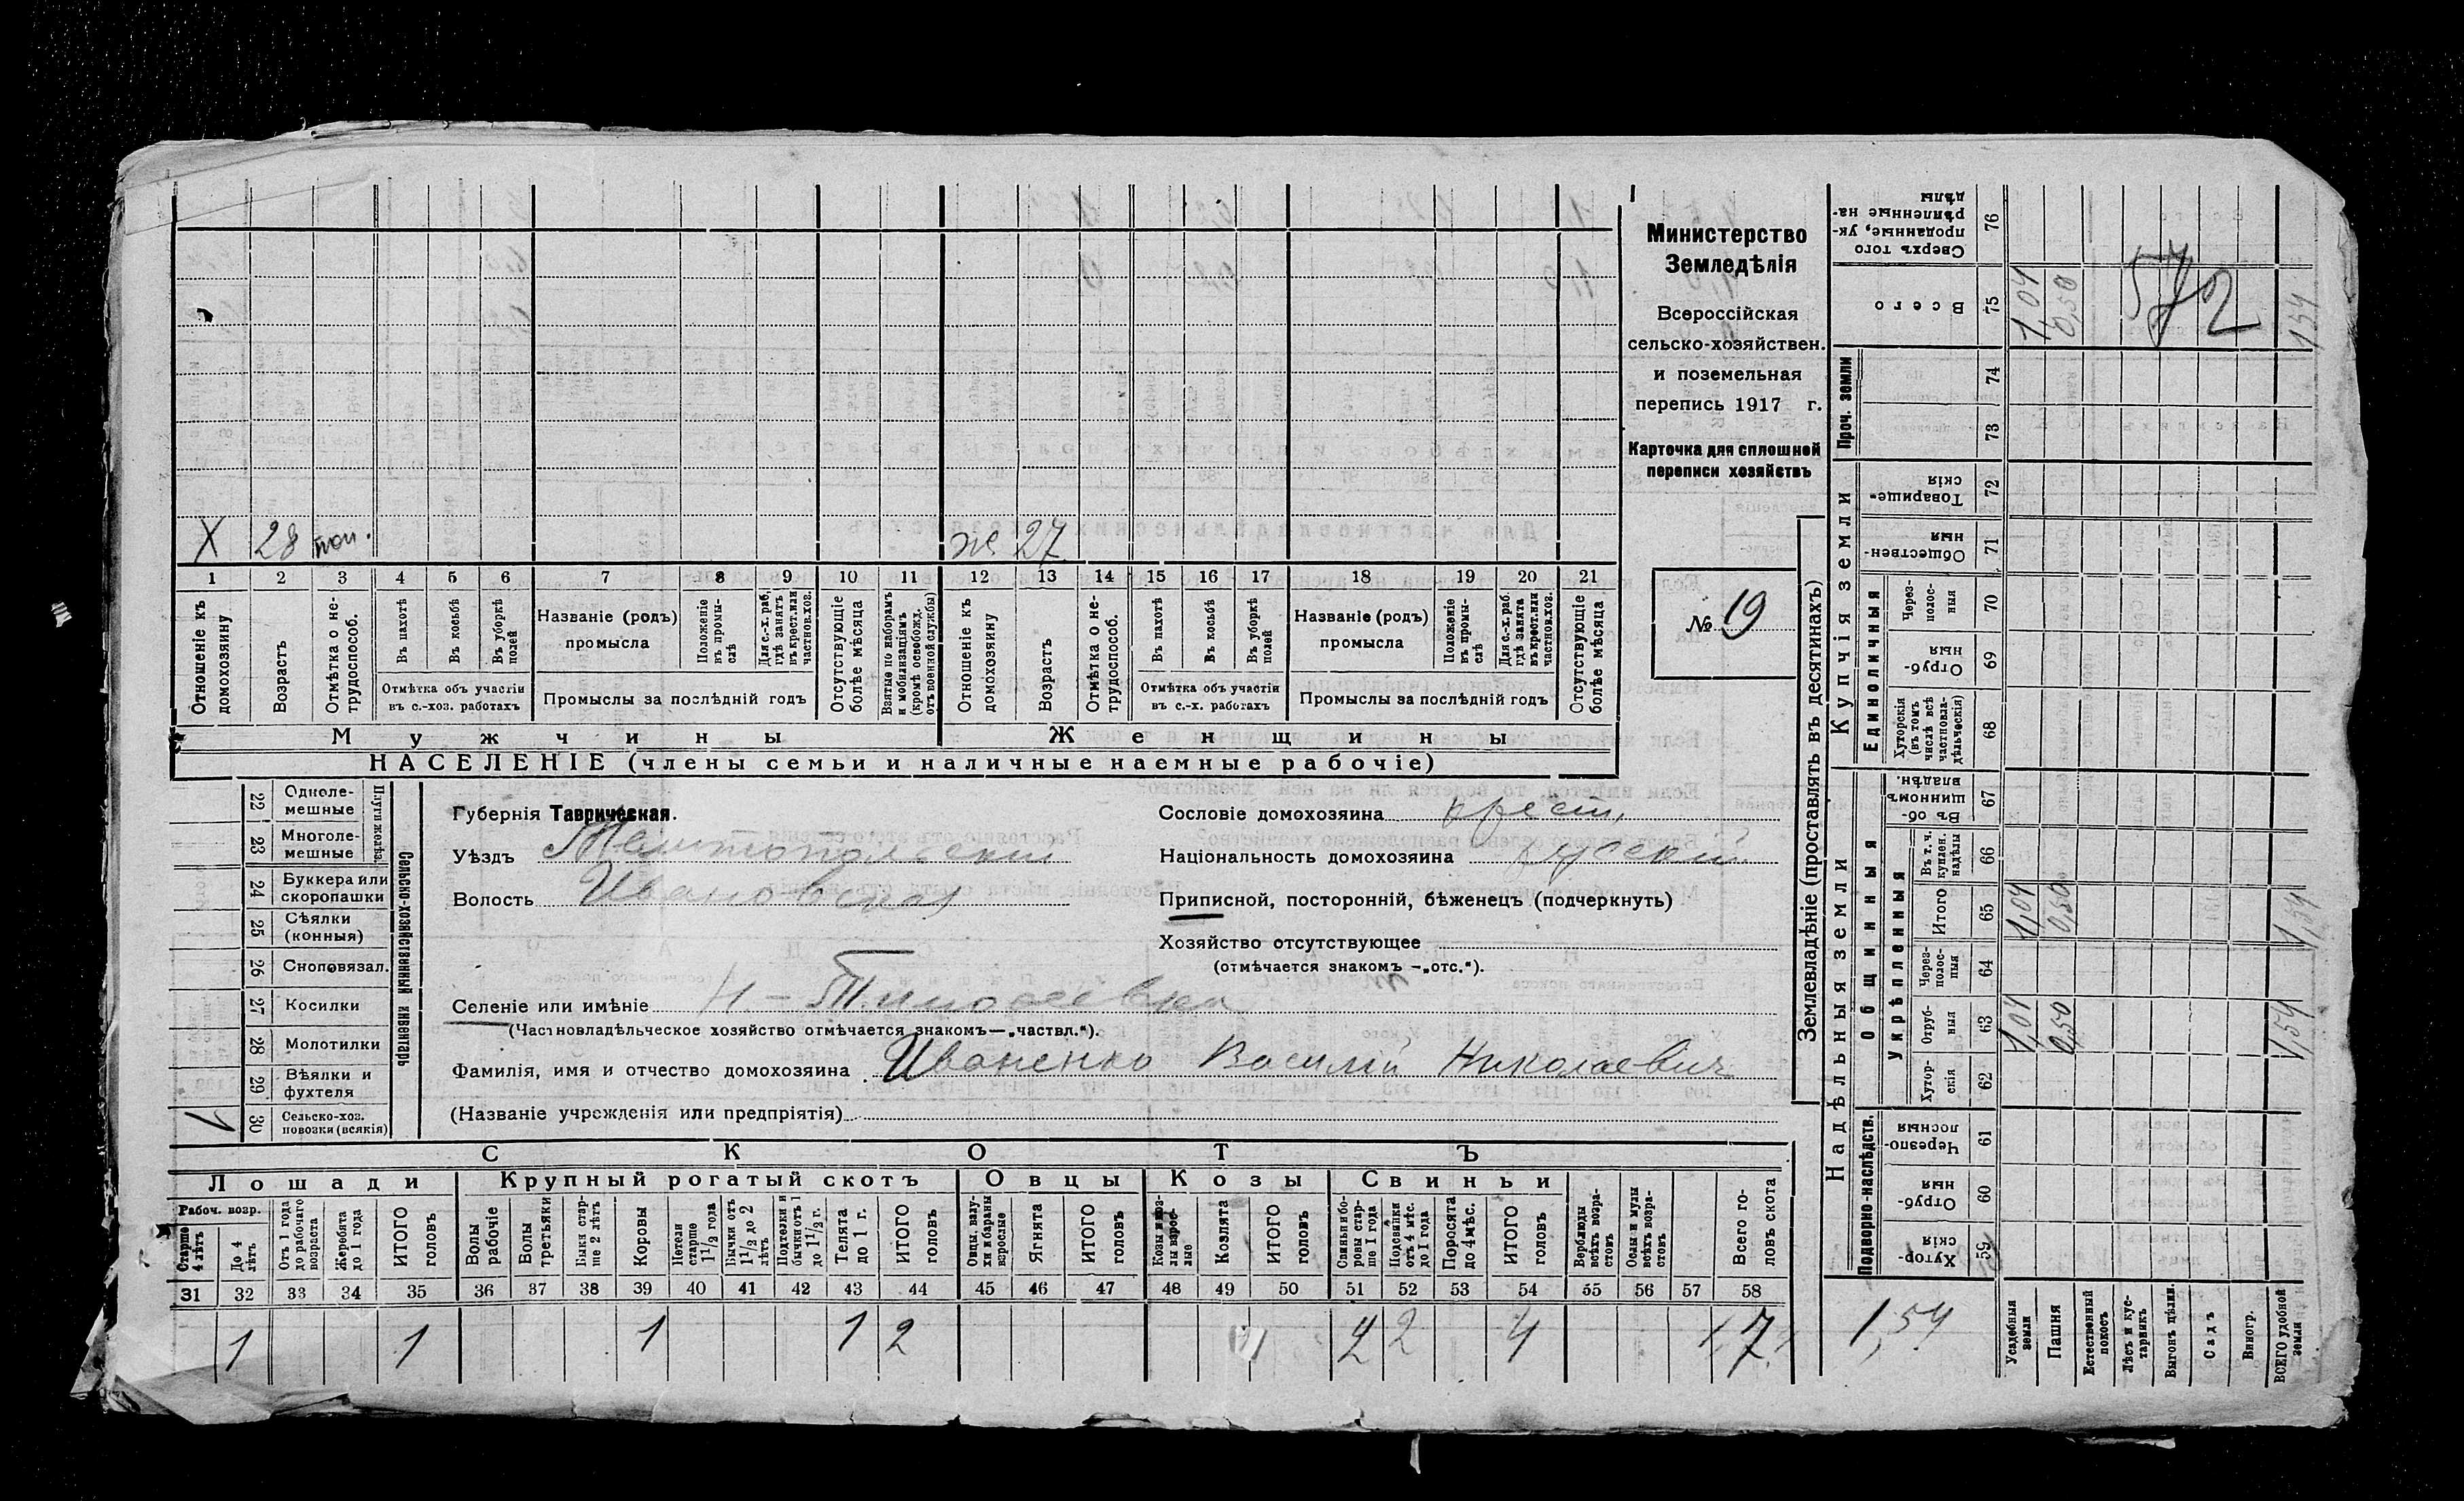 Министерство
Земледѣлія
Всероссійская
сельско-хозяйствен.
и поземельная
перепись 1917 г.
Карточка для сплошной
переписи хозяйствъ
№ 19
Х 28 ж 27
1 2 3 4 5 6 7 8 9 10 11 12 13 14 15 16 17 18 19 20 21
Отношеніе къ домохозяину
Возрастъ
Отмѣтка о не-трудоспособ.
Въ пахотѣ
Въ косьбѣ
Въ уборкѣ полей
Отмѣтка объ участіи въ с.-хоз. работахъ
Названіе (родъ) промысла
Положеніе въ промы-слѣ
Для с.-х. раб, гдѣ занятъ въ крест. или частнов. хоз.
Промыслы за послѣдній годъ
Отсутствующіе болѣе мѣсяца
Взятые по наборамъ и мобилизаціямъ (кромѣ освобожд. отъ военной службы)
Отношеніе къ домохозяину
Возрастъ
Отмѣтка о не-трудоспособ.
Въ пахотѣ
Въ косьбѣ
Въ уборкѣ полей
Отмѣтка объ участіи въ с.-х. работахъ
Названіе (родъ) промысла
Положеніе въ промы-слѣ
Для с.-х. раб. гдѣ занята въ крест. или частнов. хоз.
Промыслы за послѣдній годъ
Отсутствующіе болѣе мѣсяца
Мужчины
Женщины
НАСЕЛЕНІЕ (члены семьи и наличные наемные рабочіе)
22 Однолемешные
23 Многолемешные
Плуги желѣз.
24 Буккера или скоропашки
25 Сѣялки (конныя)
26 Сноповязал.
27 Косилки
28 Молотилки
29 Вѣялки и фухтеля
30 Сельско-хоз. повозки (всякія)
1
Сельско-хозяйственный инвентарь
Губернія Таврическая.
Уѣздъ Мелитопольский
Волость Ивановская
Селеніе или имѣніе Н-Тимофеевка
(Частновладѣльческое хозяйство отмѣчается знакомъ—„частвл.“).
Фамилія, имя и отчество домохозяина Иваненко Василий Николаевич
(Названіе учрежденія или предпріятія)
Сословіе домохозяина крест.
Національность домохозяина русский
Приписной, посторонній, бѣженецъ (подчеркнуть)
Хозяйство отсутствующее
(отмѣчается знакомъ —„отс.“).
СКОТЪ
Лошади
Крупный рогатый скотъ
Овцы
Козы
Свиньи
Рабоч. возр.
Старше 4 лѣтъ
До 4 лѣтъ
Отъ 1 года до рабочаго возраста
Жеребята до 1 года
ИТОГО головъ
Волы рабочіе
Волы третьяки
Быки стар-ше 2 лѣтъ
Коровы
Нетели старше 1 1/2 года
Бычки отъ 1 1/2 до 2 лѣтъ
Подтелки и бычки отъ 1 до 1 1/2 г.
Телята до 1 г.
ИТОГО головъ
Овцы, валу-хи и бараны взрослые
Ягнята
ИТОГО головъ
Козы и коз-лы взрос-лые
Козлята
ИТОГО головъ
Свиньи и бо-ровы стар-ше 1 года
Подсвинки отъ 4 мѣс. до 1 года
Поросята до 4 мѣс.
ИТОГО головъ
Верблюды всѣхъ возра-стовъ
Ослы и мулы всѣхъ возра-стовъ
Всего го-ловъ скота
31 32 33 34 35 36 37 38 39 40 41 42 43 44 45 46 47 48 49 50 51 52 53 54 55 56 57 58
1 1 1 1 2 2 2 4 7
Землевладѣніе (проставлять въ десятинахъ)
Надѣльныя земли
Купчія земли
Проч. земли
Подворно-наслѣдств.
Общинныя
Укрѣпленныя
Единоличныя
Сверхъ того проданные, ук-рѣпленные на-дѣлы 76
Всего 75 1,04 0,50 1,54
572
74
73
Товарище-скія 72
Обществен-ныя 71
Через-полос-ныя 70
Отруб-ныя 69
Хуторскія (въ томъ числѣ всѣ частновла-дѣльческія) 68
Въ об-щинномъ владѣн. 67
Въ т. ч. куплен. надѣлы 66
Итого 65 1,04 0,50 1,54
Через-полос-ныя 64
Отруб-ныя 63 1,04 0,50 1,54
Хутор-скія 62
Черезпо-лосныя 61
Отруб-ныя 60
Хутор-скія 59
1,54
Усадебныя земли
Пашня
Естественный покосъ
Лѣсъ и кус-тарникъ
Выгонъ цѣлин.
Садъ
Виногр.
ВСЕГО удобной земли